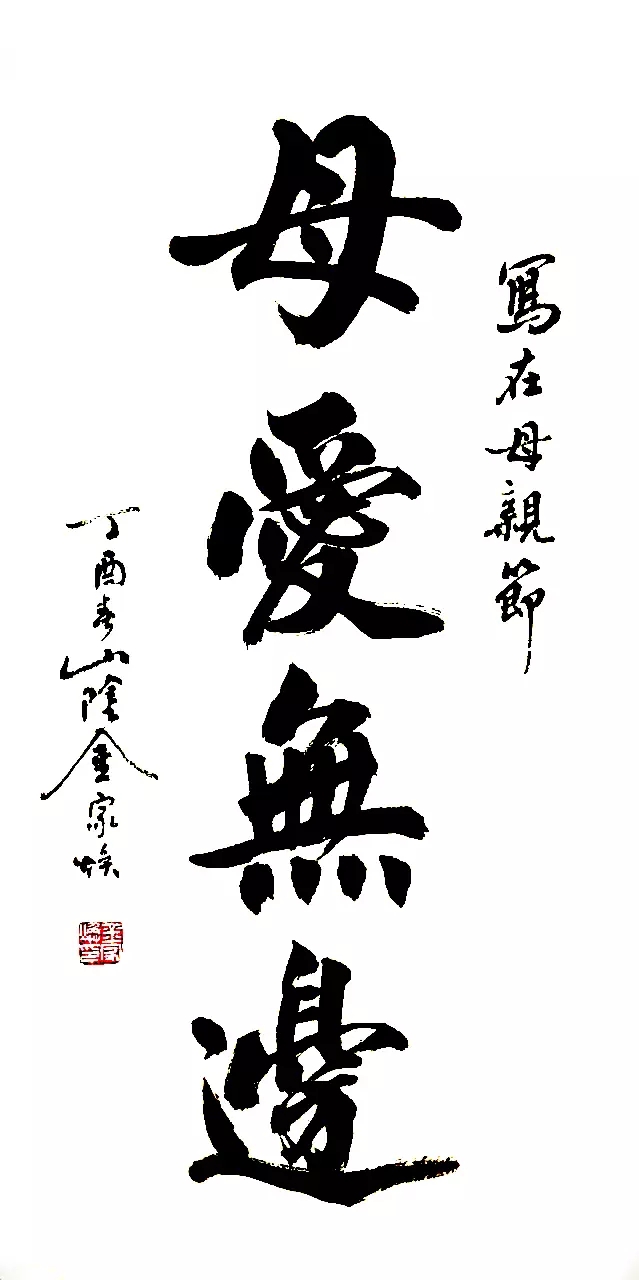 寫在母親節
母愛無邊
丁酉春山陰金家煥